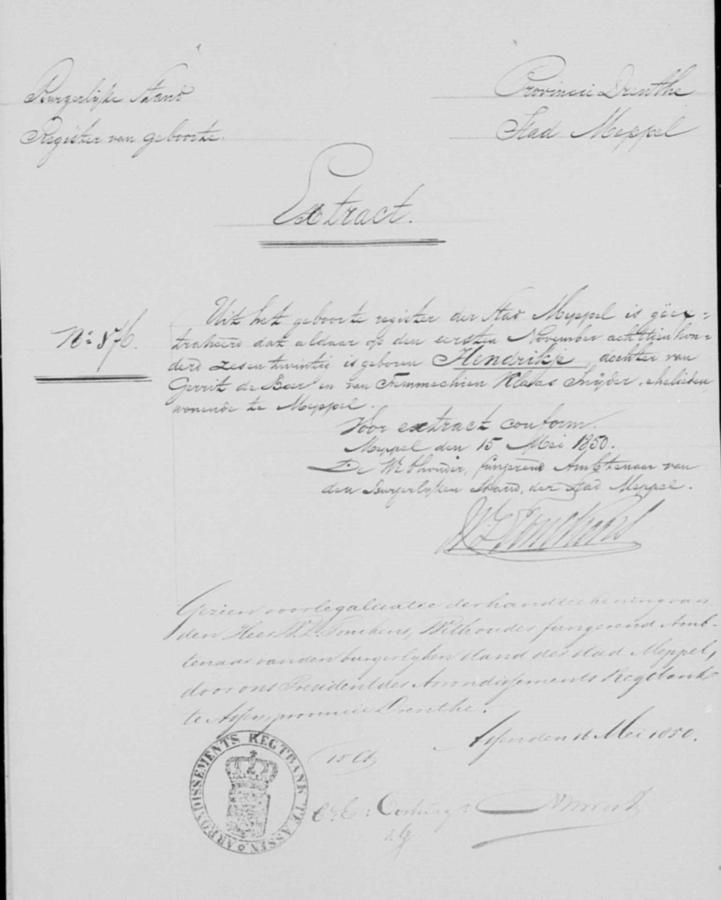 Burgerlijke Stand
Register van geboorte.
Provincie Drenthe
Stad Meppel
Extract.
No 876.
Uit het geboorte register der Stad Meppel is geëx-
traheerd dat aldaar op den eersten November achttien hon-
derd zesentwintig is geboren Hendrikje, dochter van
Gerrit de Boer en van Femmechien Klaas Snijder, ehelieden,
wonende te Meppel.
Voor extract conform.
Meppel den 15 Mei 1850.
De Wethouder, fungerend Ambtenaar van
den Burgerlijken Stand, der Stad Meppel.
Gezien voor legalisatie der handteekening van
den Heer W.L. Tonckens, Wethouder fungerend Amb-
tenaar van den burgerlijken stand der stad Meppel,
door ons President des Arrondissements Regtbank
te Assen provincie Drenthe.
Assen den Mei 1850.
ARRONDISSEMENTS REGTBANK TE ASSEN